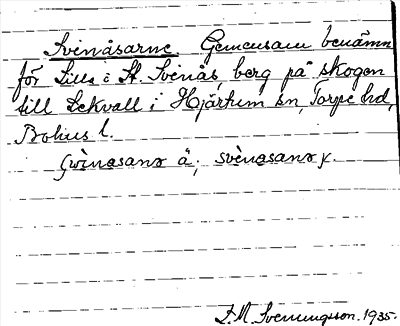 Svinåsarne Gemensam benämn
för Lilla o St. Svinås, berg på skogen
till Lekvall i Hjärtum sn, Torpe hd,
Bohus l.
svìnasanɤ ä; svènasanɤ y.
F.M. Svenungsson. 1935.